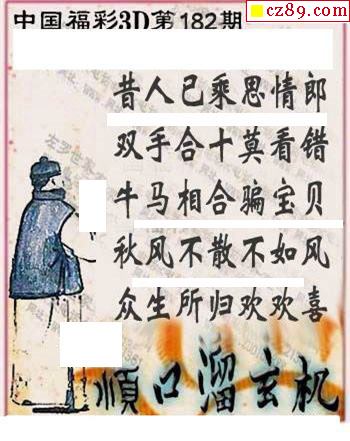 中国福彩3D第182期
cz89.com
昔人已乘思情郎
双手合十莫看错
牛马相合骗宝贝
秋风不散不如风
众生所归欢欢喜
顺口溜玄机